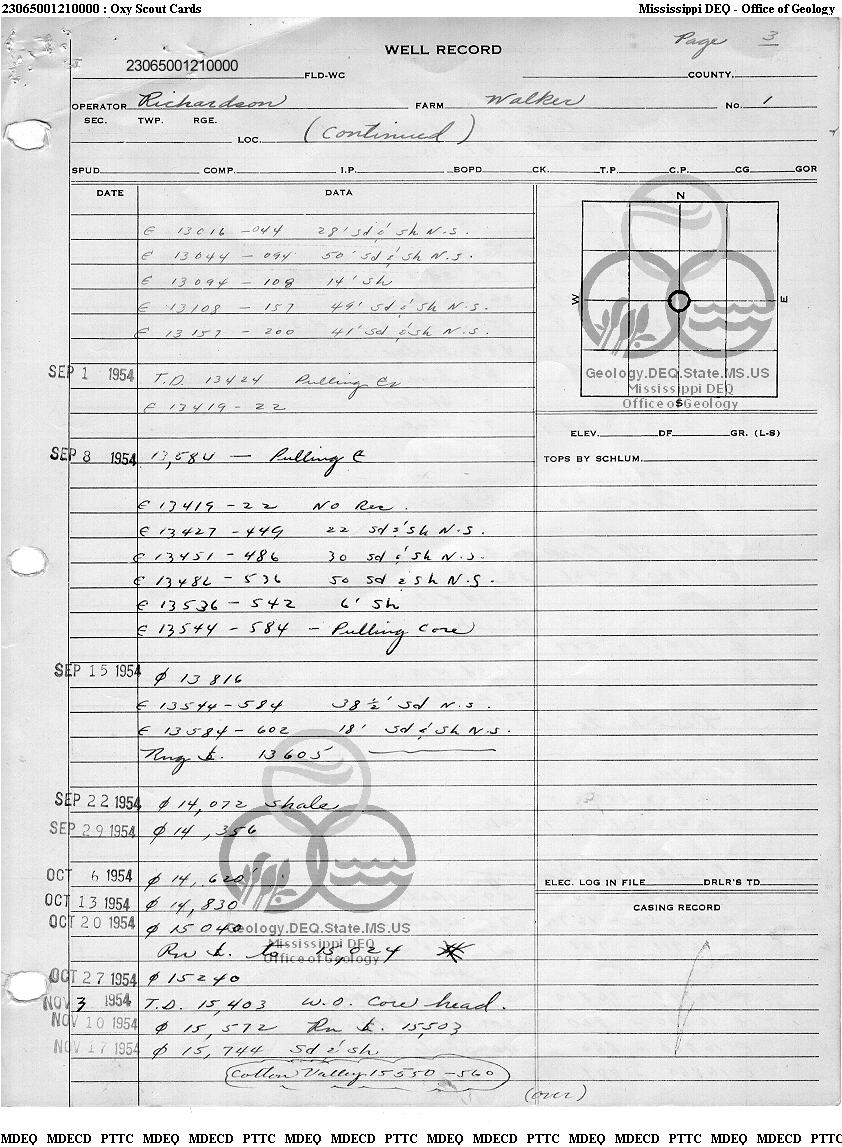 23065001210000 : Oxy Scout Cards Mississippi DEQ - Office of Geology
Page 3
WELL RECORD
23065001210000 FLD-WC COUNTY.
OPERATOR Richardson FARM Walker No. 1
SEC. TWP. RGE. LOC. (continued)
SPUD COMP. I.P. BOPD CK. T.P. C.P. CG GOR
DATE DATA
C 13016 - 044 28' sd & sh N.S.
C 13044 - 094 50' sd & sh N.S.
C 13094 - 108 14' sh
C 13108 - 157 49' sd & sh N.S.
C 13157 - 200 41' sd & sh N.S.
SEP 1 1954 T.D. 13424 Pulling
C 13419 - 22
SEP 8 1954 13,584 — Pulling C
C 13419 - 22 NO Rec.
C 13427 - 449 22 sd & sh N.S.
C 13451 - 486 30 sd & sh N.S.
C 13486 - 536 50 sd & sh N.S.
C 13536 - 542 6' sh
C 13544 - 584 - Pulling Core
SEP 15 1954 φ 13816
C 13544 - 584 38 1/2' sd N.S.
C 13584 - 602 18' sd & sh N.S.
13605
SEP 22 1954 φ 14,072 shale
SEP 29 1954 φ 14,356
OCT 6 1954 φ 14,620'
OCT 13 1954 φ 14,830
OCT 20 1954 φ 15040
to 15,024
OCT 27 1954 φ 15240
NOV 3 1954 T.D. 15,403 W.O. Core head.
NOV 10 1954 φ 15,572 15,503
NOV 17 1954 φ 15,744 sd & sh
Cotton Valley 15550 - 560
(over)
N
W E
S
Geology.DEQ.State.MS.US
Mississippi DEQ
Office of Geology
ELEV. DF GR. (L-S)
TOPS BY SCHLUM.
ELEC. LOG IN FILE DRLR'S TD
CASING RECORD
Geology.DEQ.State.MS.US
Mississippi DEQ
Office of Geology
MDEQ MDECD PTTC MDEQ MDECD PTTC MDEQ MDECD PTTC MDEQ MDECD PTTC MDEQ MDECD PTTC MDEQ MDECD PTTC